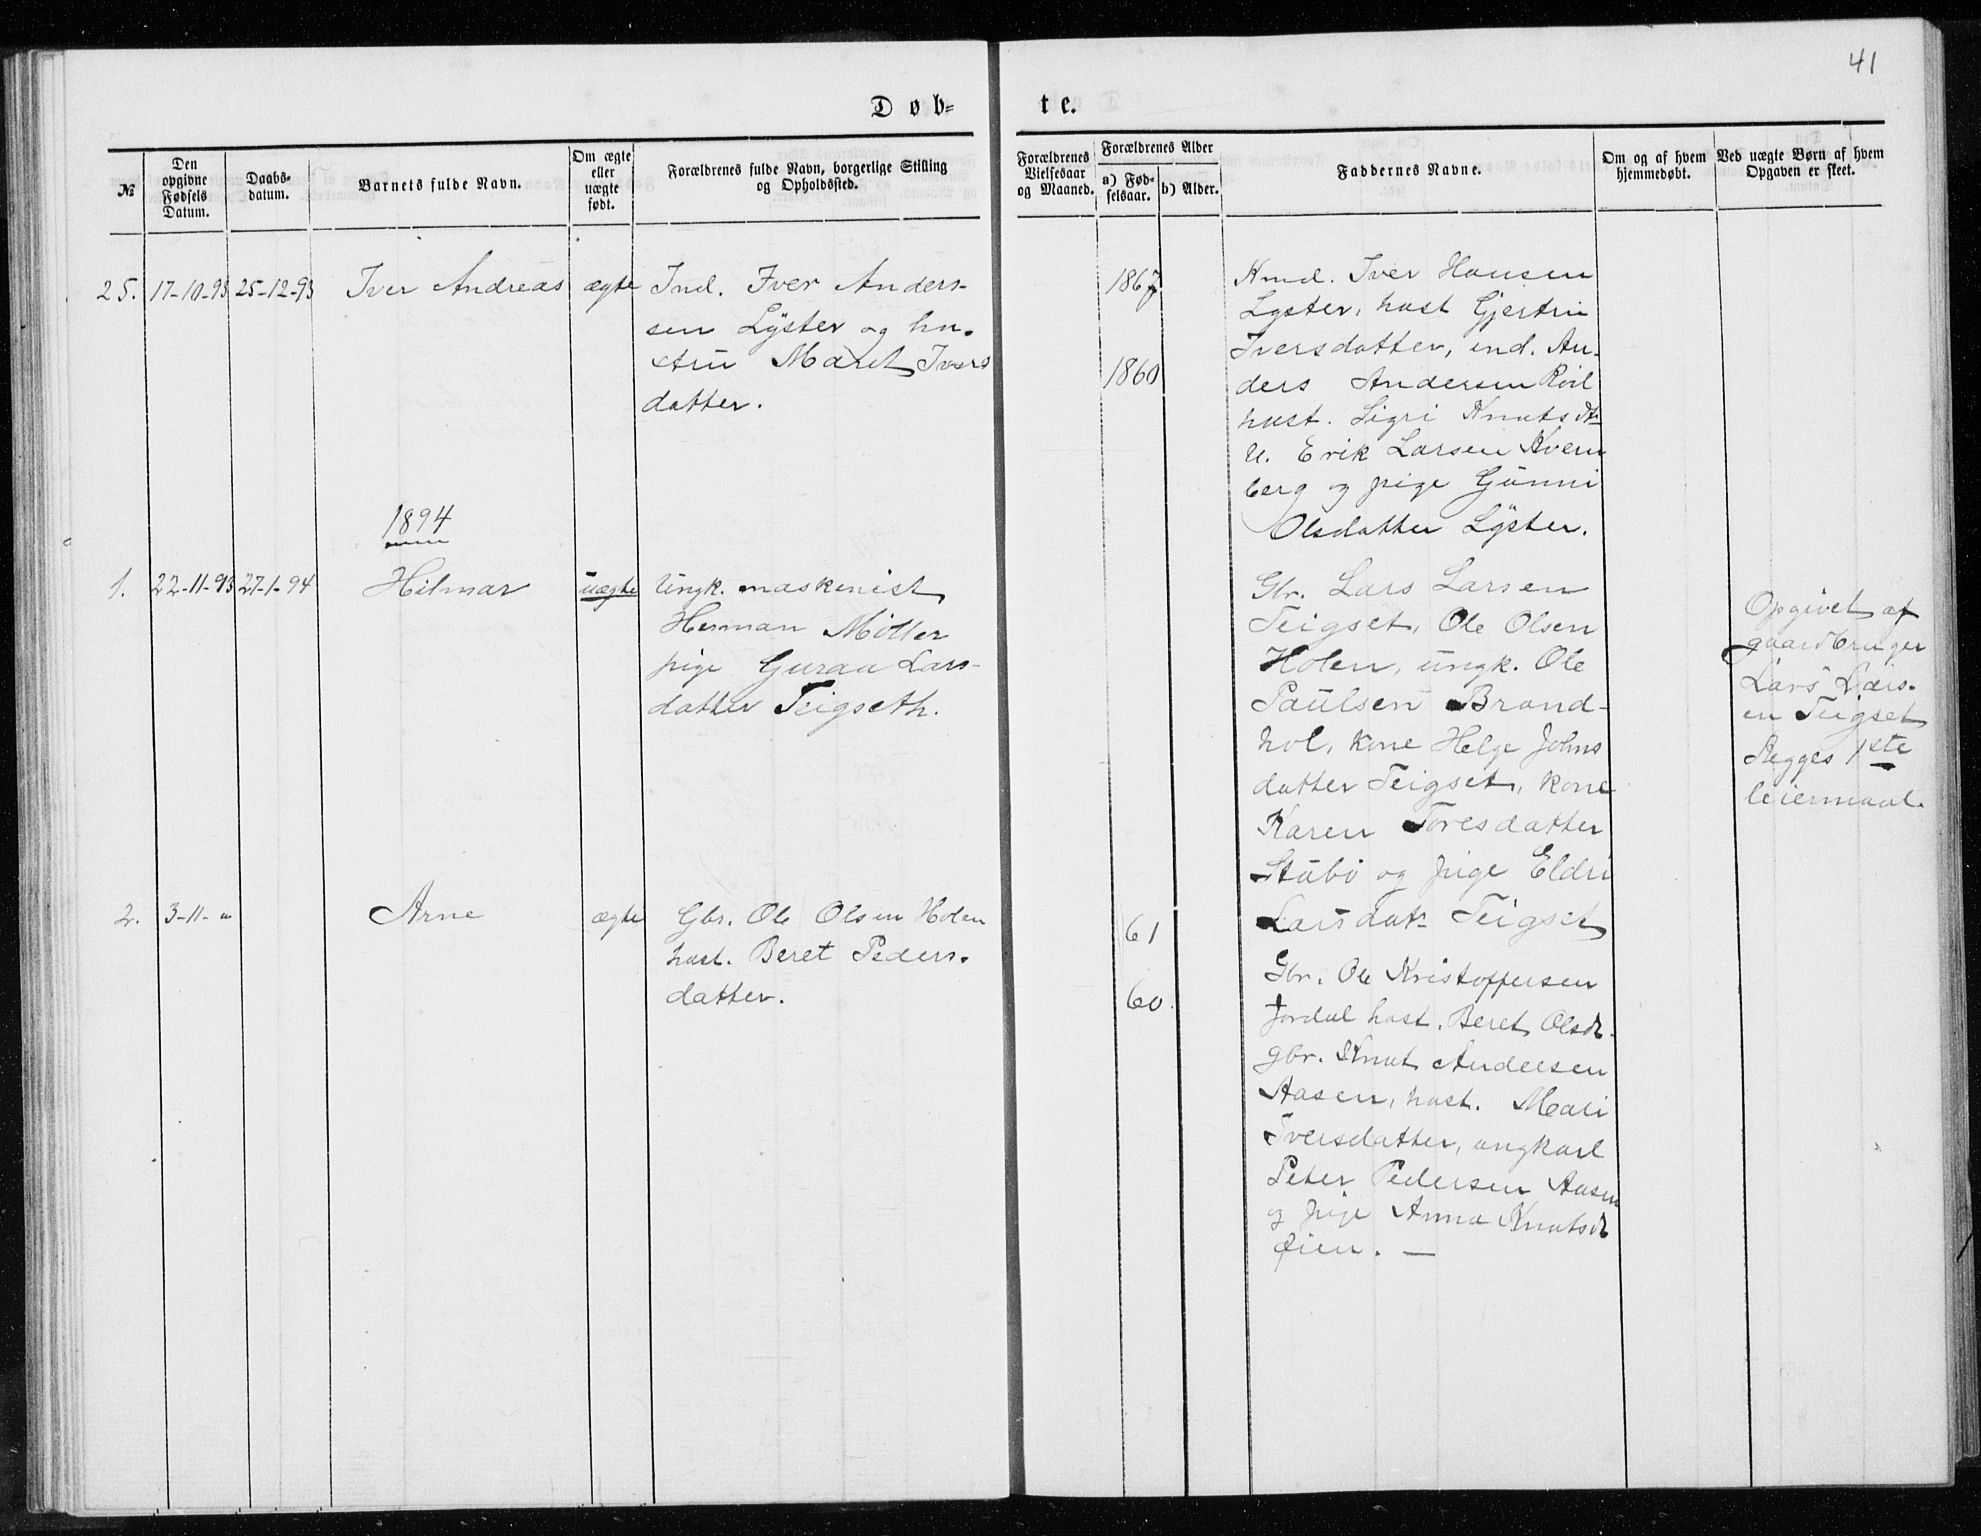 41
Døb=
te.
№
Den opgivne Fødsels Datum.
Daabs-datum.
Barnets fulde Navn.
Om ægte eller uægte født.
Forældrenes fulde Navn, borgerlige Stilling og Opholdssted.
Forældrenes Vielsesaar og Maaned.
Forældrenes Alder
a) Fødselsaar.
b) Alder.
Faddernes Navne.
Om og af hvem hjemmedøbt.
Ved uægte Børn af hvem Opgaven er skeet.
25. 17-10-93 25-12-93 Iver Andreas ægte
Ind. Iver Anders-
sen Lyster og hu-
stru Maret Ivers
datter.
1867
1860
Kmd. Iver Hansen
Lyster, hust Gjertru
Iversdatter, ind. An-
ders Andersen Röil
hust. Sigri Knutsdt
U. Erik Larsen Kvern
berg og pige Gunni
Olsdatter Lyster.
1894
1. 22-11-93 27-1-94 Hilmar uægte
Ungk. maskenist
Herman Möller
pige Guraa Lars-
datter Teigseth.
Gbr. Lars Larsen
Teigset, Ole Olsen
Holen, ungk. Ole
Paulsen Brand-
hol, kone Helge Johns
datter Teigset, kone
Karen Toresdatter
Stubö og pige Eldri
Larsdat Teigset
Opgivet af
gaardbruger
Lars Lars-
en Teigset
Begges 1ste
leiermaal.
2. 3-11-" Arne ægte
Gbr. Ole Olsen Holen
hust. Beret Peders-
datter.
61
60.
Gbr. Ole Kristoffersen
Jordal hust. Beret Olsdt.
gbr. Knut Andersen
Aasen, hust. Mari
Iversdatter, ungkarl
Peter Pedersen Aasen
og pige Anna Knutsdt
Øien. —